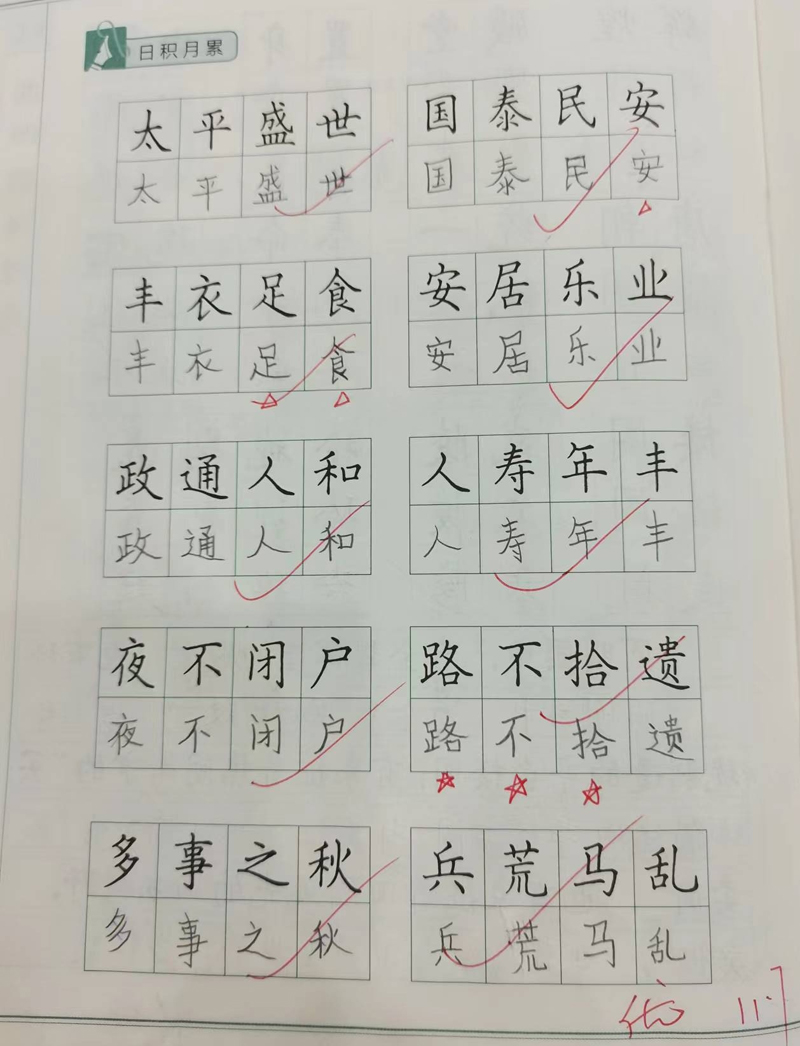 日积月累
太平盛世 国泰民安
太平盛世 国泰民安
丰衣足食 安居乐业
丰衣足食 安居乐业
政通人和 人寿年丰
政通人和 人寿年丰
夜不闭户 路不拾遗
夜不闭户 路不拾遗
多事之秋 兵荒马乱
多事之秋 兵荒马乱
优